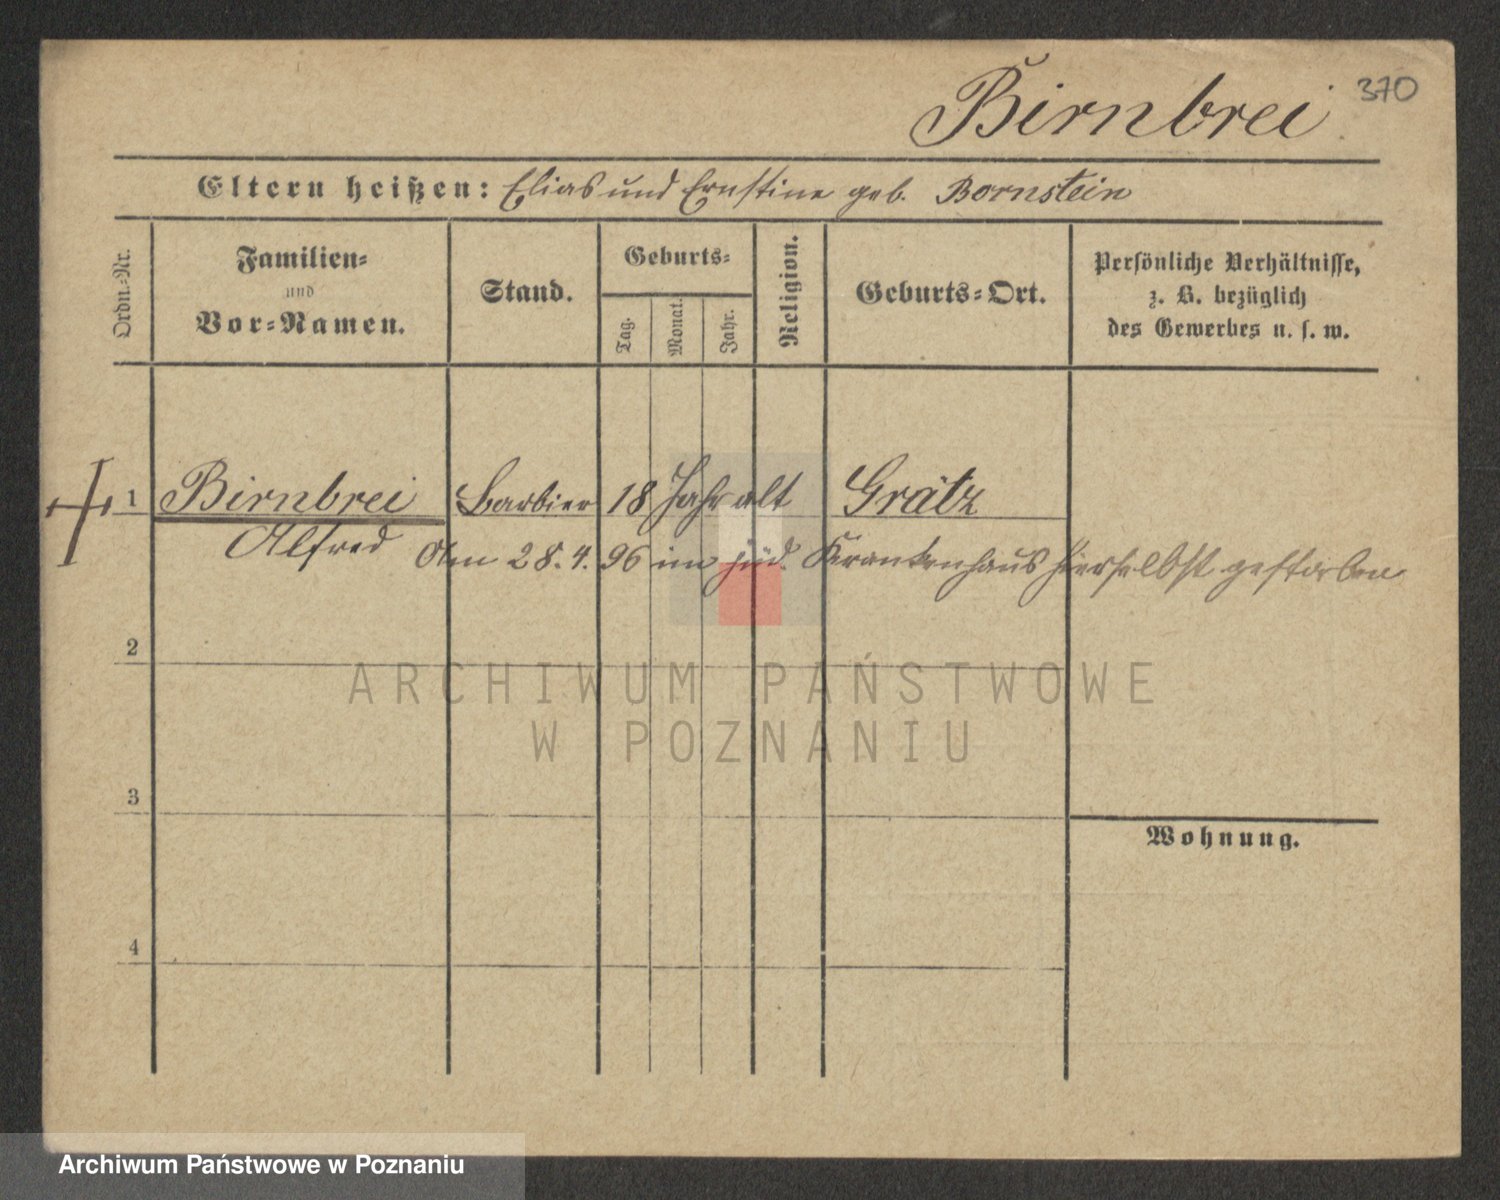 Birnbrei 370
Eltern heißen: Elias und Ernstine geb. Bornstein
Ordn.-Nr.
Familien-
und
Vor-Namen.
Stand.
Geburts-
Tag.
Monat.
Jahr.
Religion.
Geburts-Ort.
Persönliche Verhältnisse,
z. B. bezüglich
des Gewerbes u. s. w.
1 Birnbrei Barbier 18 Jahr alt Grätz
Alfred Am 28.4.96 im jüd. Krankenhaus hierselbst gestorben
2
ARCHIWUM PAŃSTWOWE
W POZNANIU
3
Wohnung.
4
Archiwum Państwowe w Poznaniu